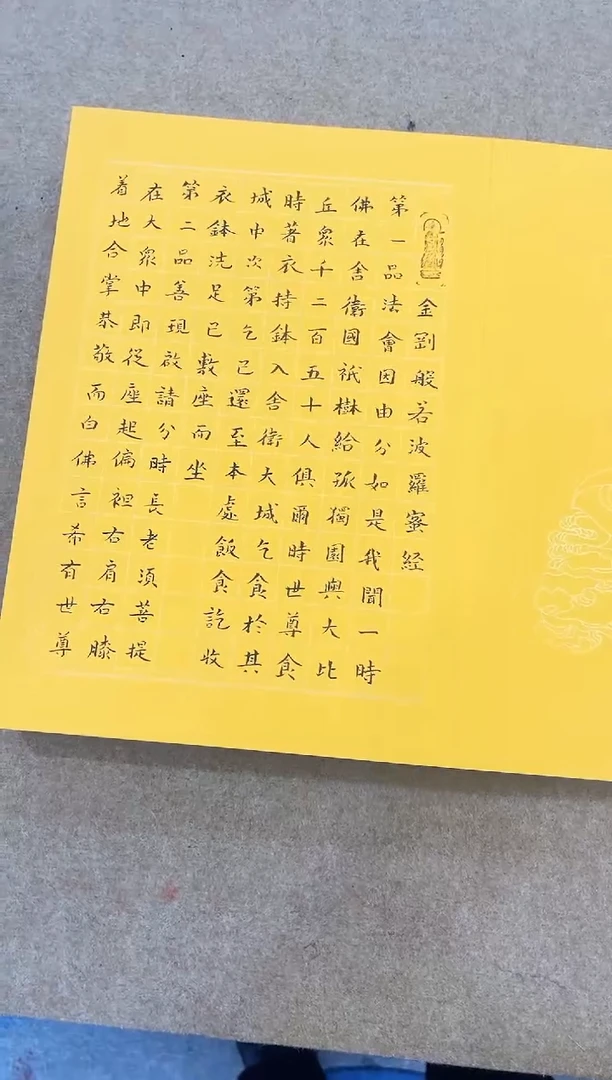 金剛般若波羅蜜経
第一品法會因由分如是我聞一時
佛在舍衛國祇樹給孤獨園與大比
丘衆千二百五十人俱爾時世尊食
時著衣持鉢入舍衛大城乞食於其
城中次第乞已還至本處飯食訖收
衣鉢洗足已敷座而坐
第二品善現啟請分時長老須菩提
在大衆中即從座起偏袒右肩右膝
着地合掌恭敬而白佛言希有世尊